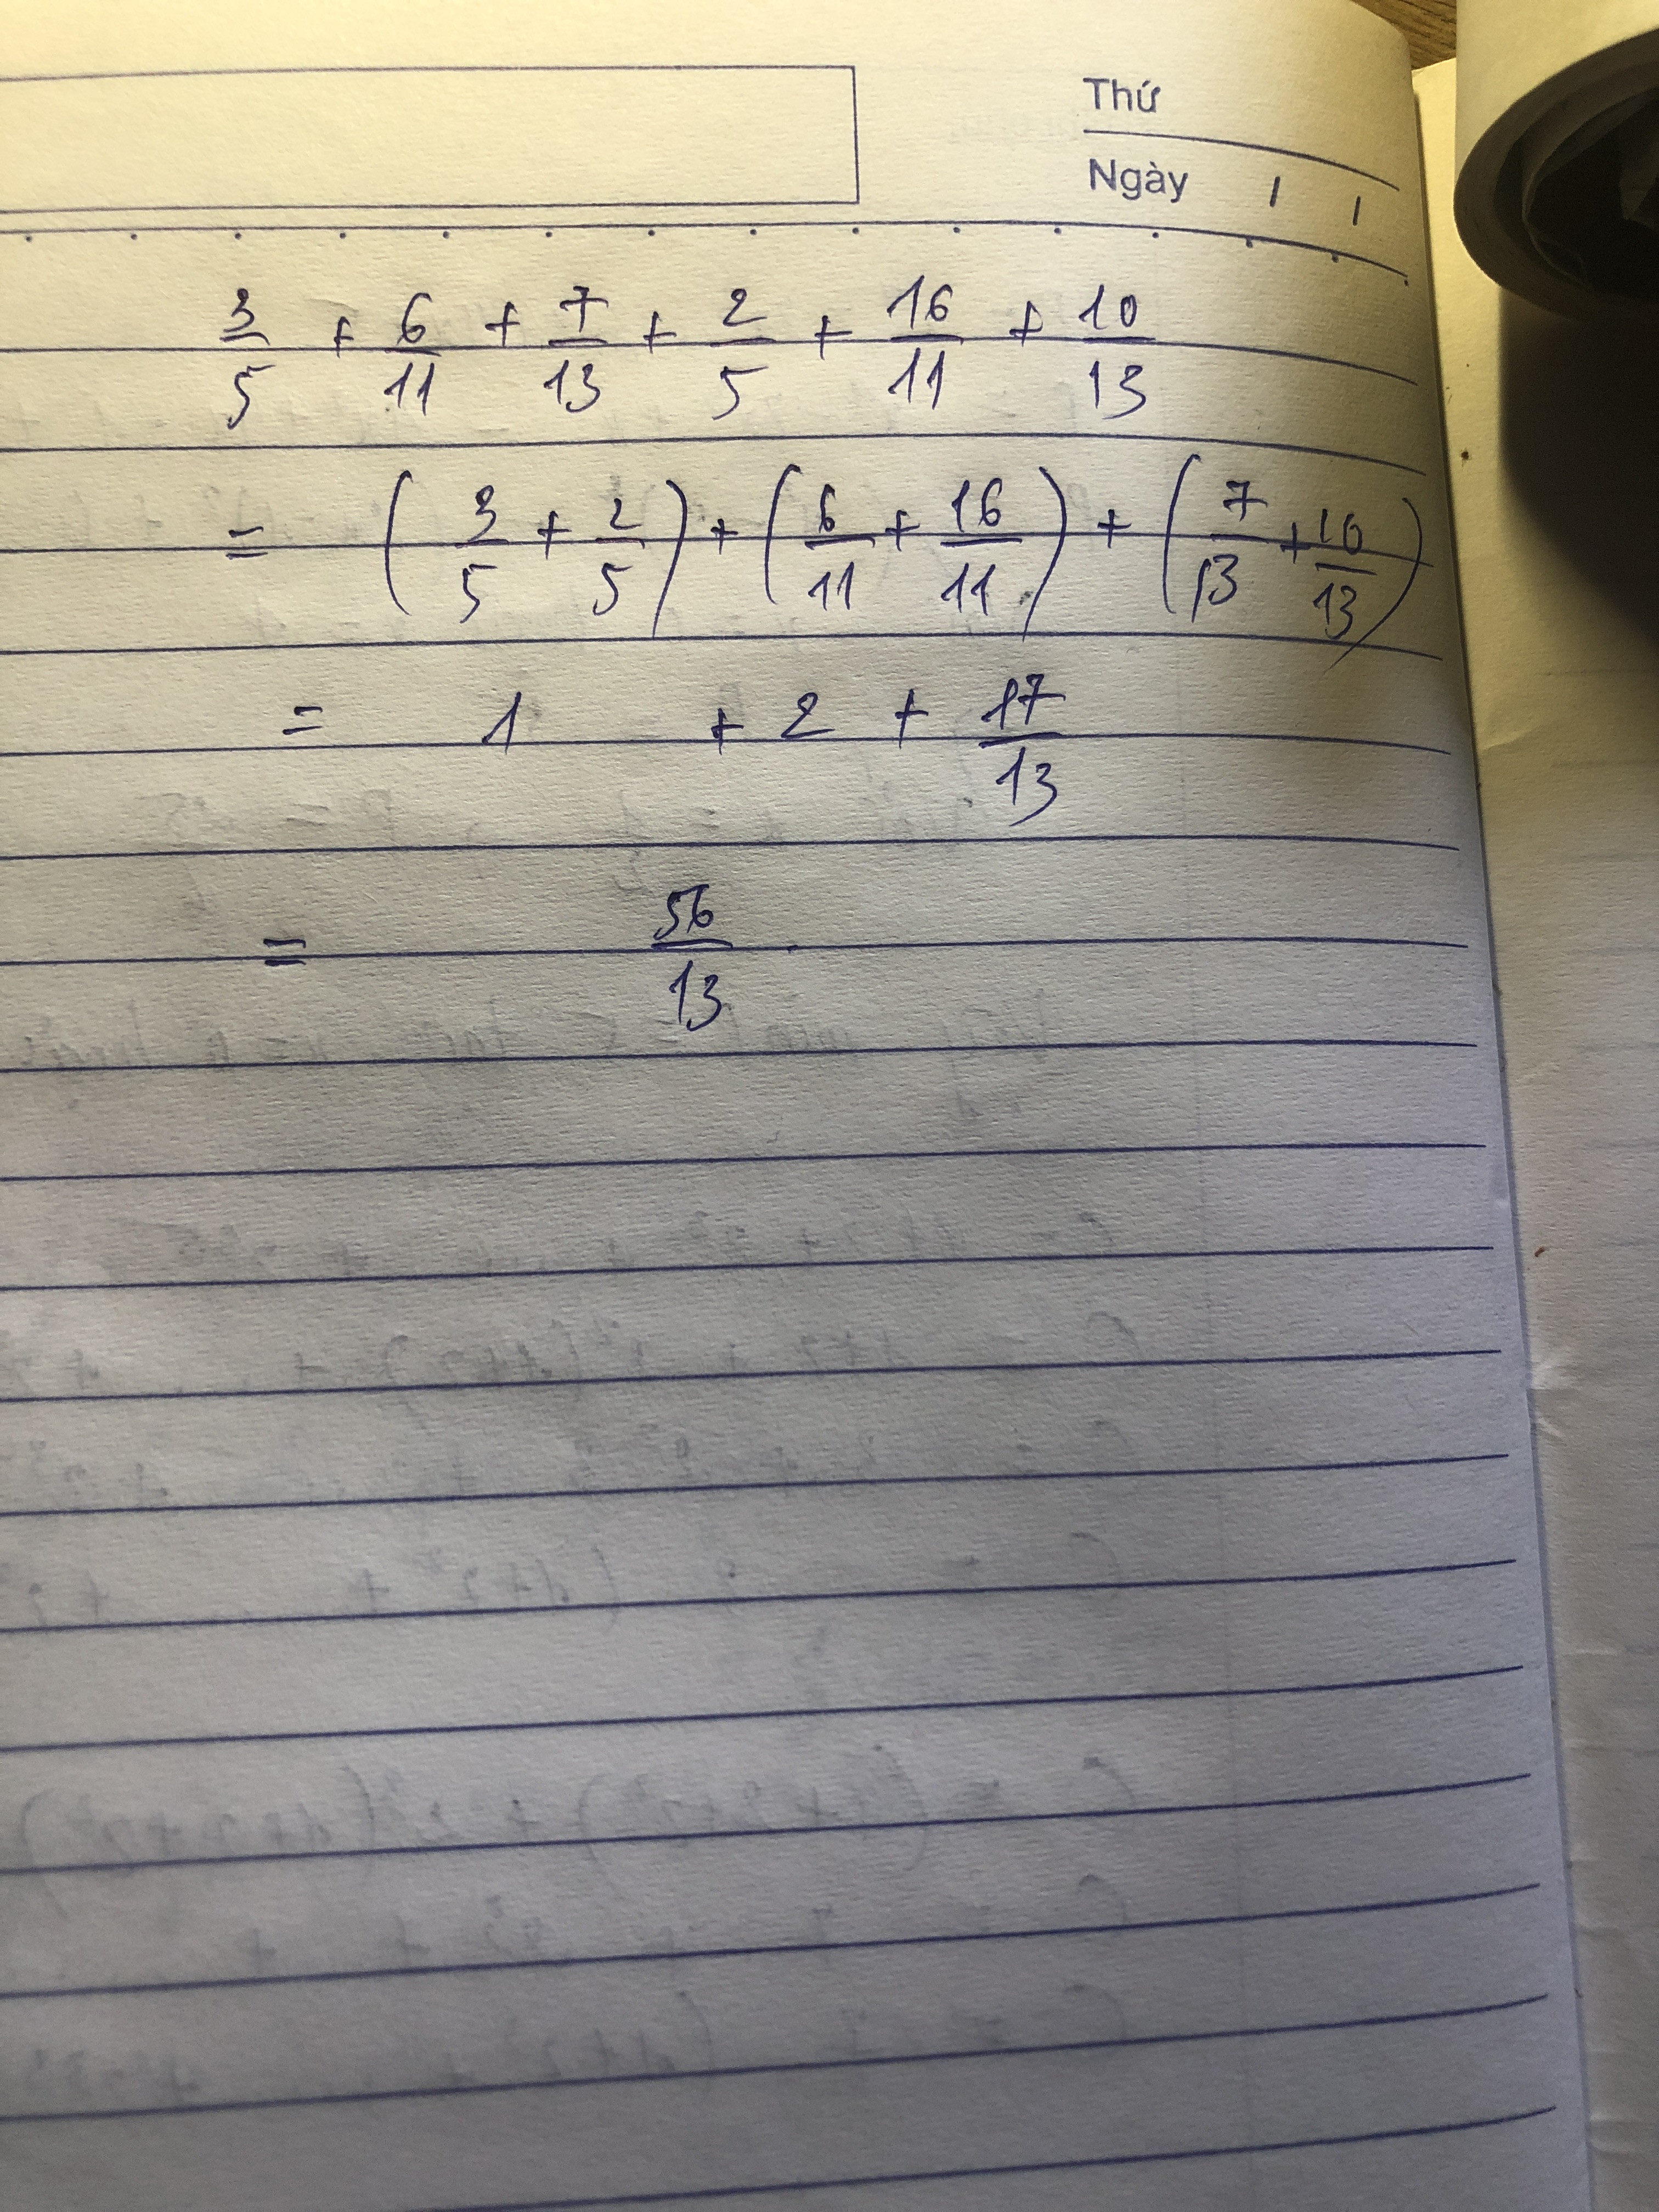 Thứ
Ngày / /
3/5 + 6/11 + 7/13 + 2/5 + 16/11 + 10/13
= (3/5 + 2/5) + (6/11 + 16/11) + (7/13 + 10/13)
= 1 + 2 + 17/13
= 56/13